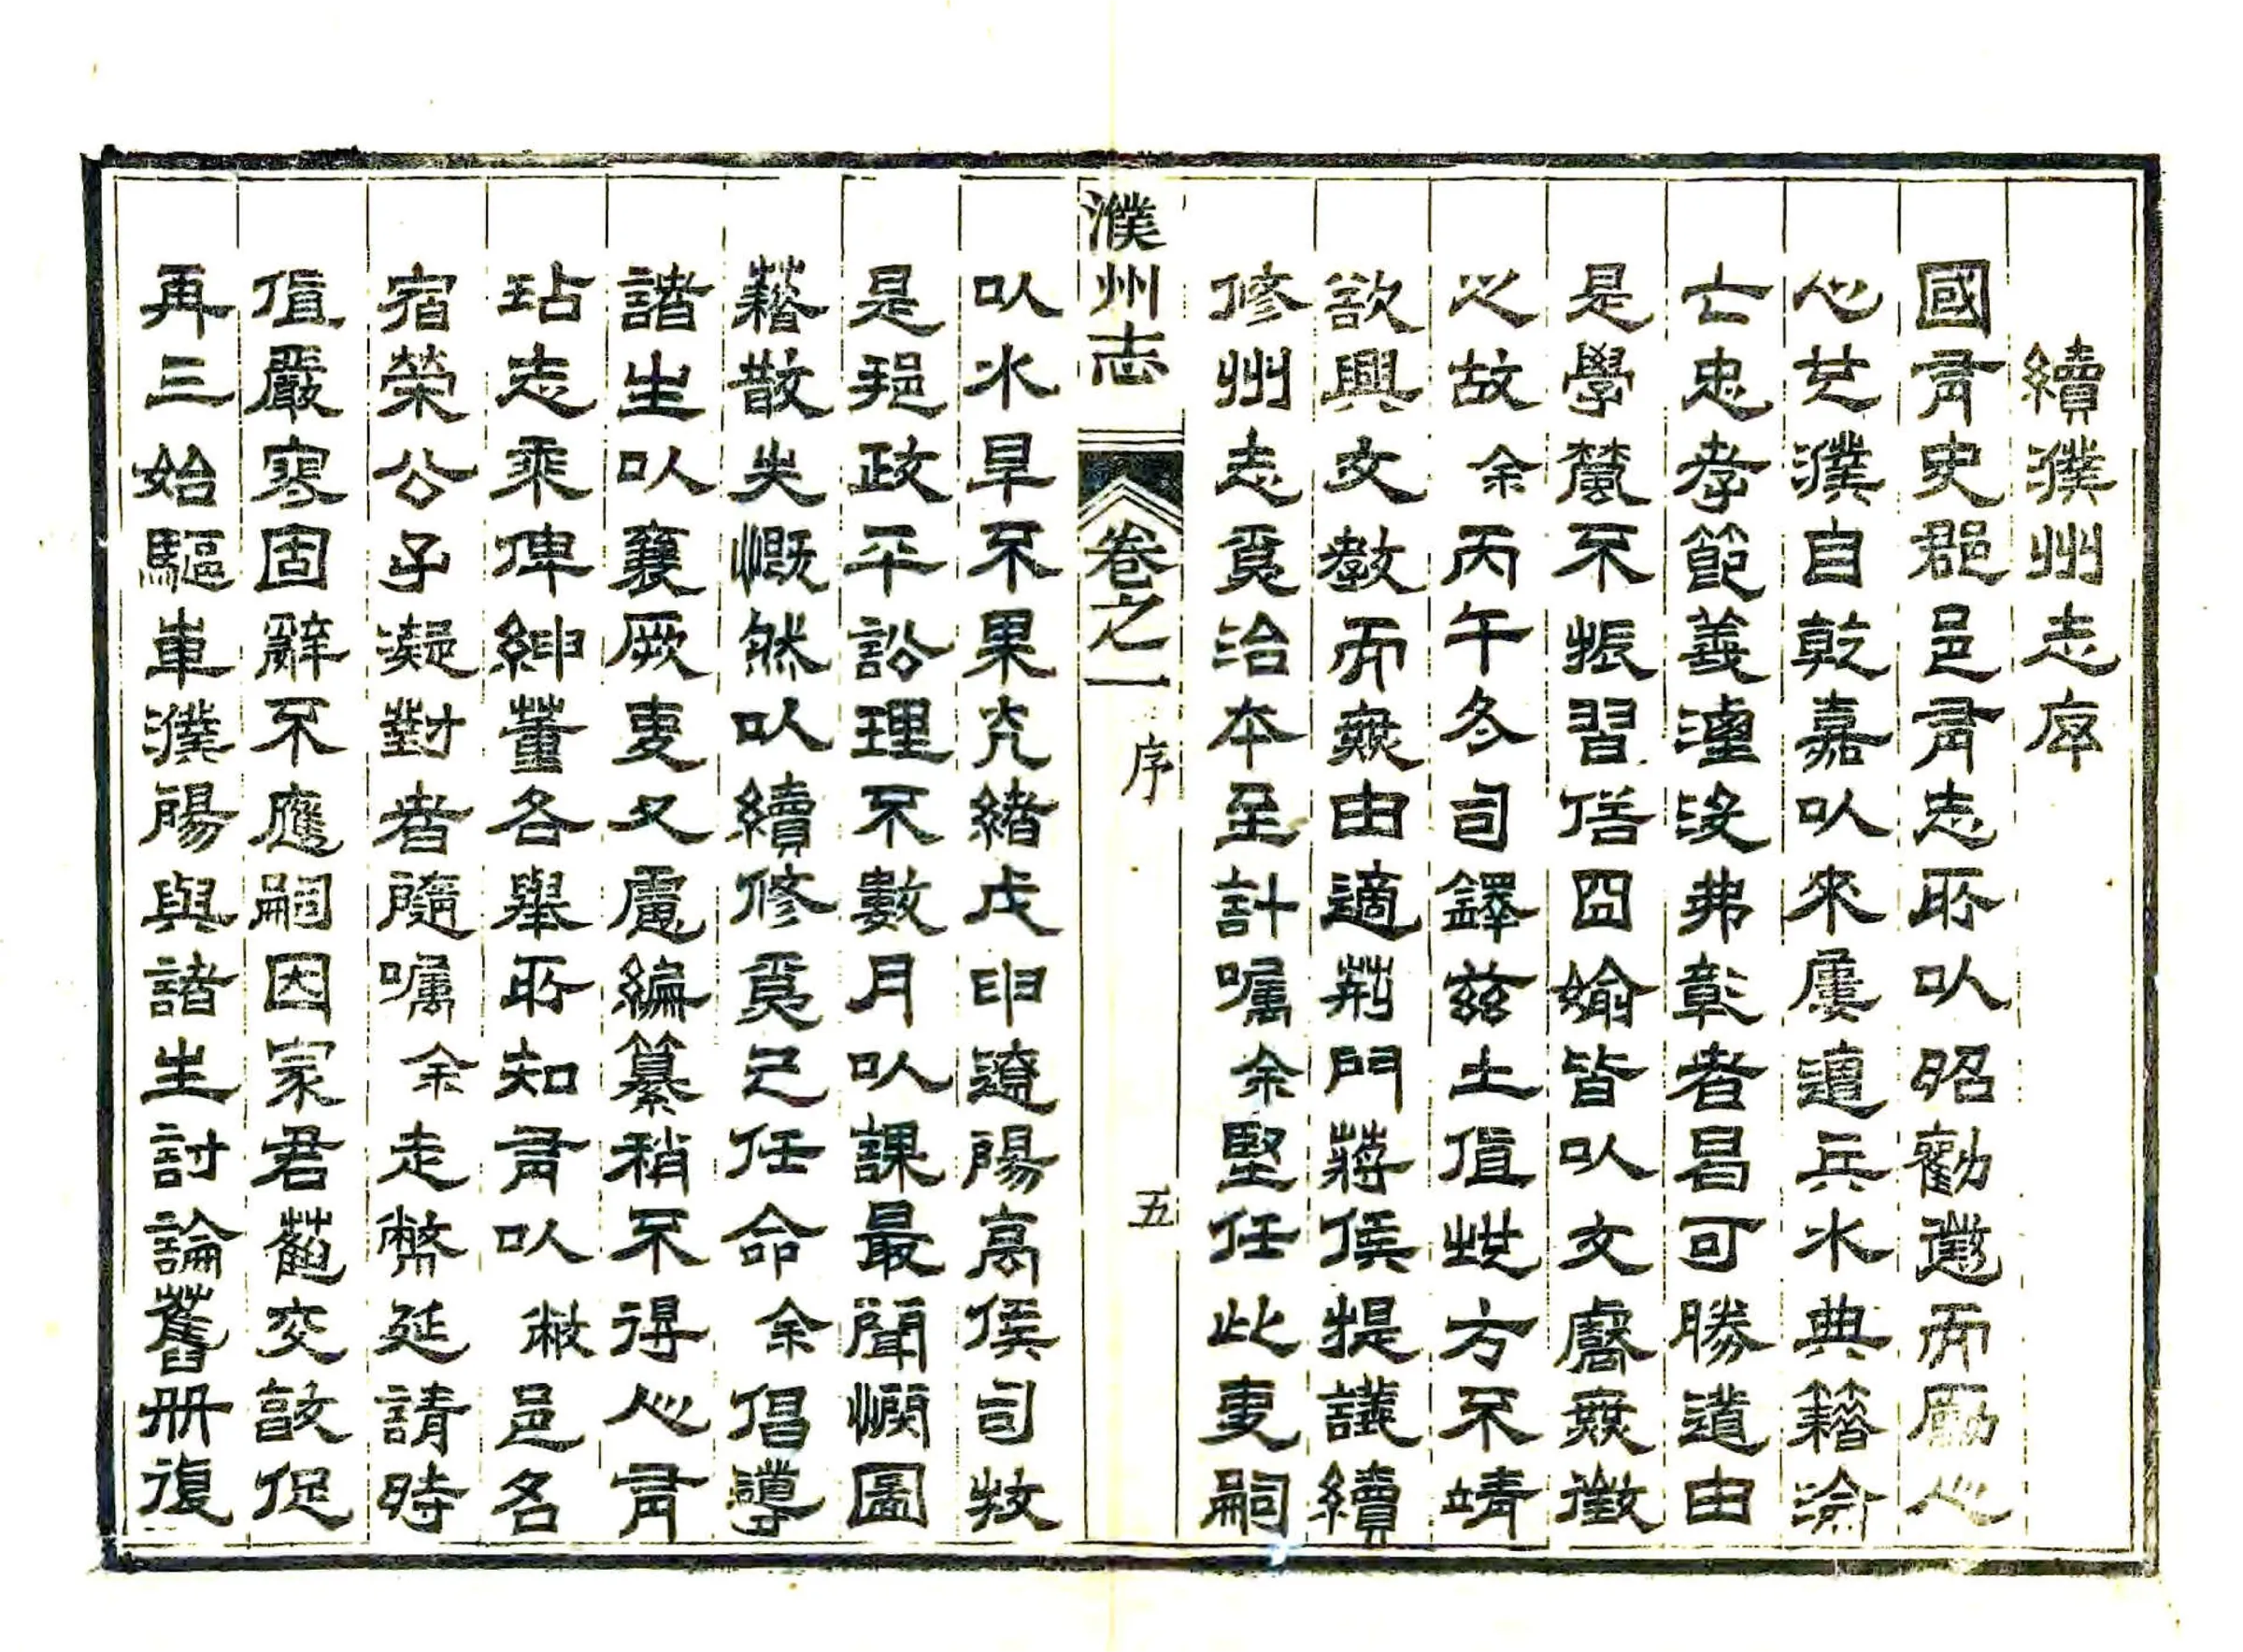 續濮州志序
國有史郡邑有志所以昭勸懲而勵心
心芝濮自乾嘉以來屢遭兵水典籍淪
亡忠孝節義湮沒弗彰者曷可勝道由
是學黌不振習俗囧媮皆以文獻無徵
之故余丙午冬司鐸茲土值世方不靖
欲興文教而無由適荊門蔣侯提議續
修州志爲治本至計囑余堅任此事嗣
濮州志 卷之一 序 五
以水旱不果究緒戊申遼陽高侯司牧
是邑政平訟理不數月以課最聞憫圖
籍散失慨然以續修爲己任命余倡導
諸生以襄厥事又慮編纂稍不得心有
玷志乘俾紳董各舉所知有以敝邑名
宿榮公子凝對者隨囑余走幣延請時
值嚴寒固辭不應嗣因家君蒞交敦促
再三始驅車濮陽與諸生討論舊冊復